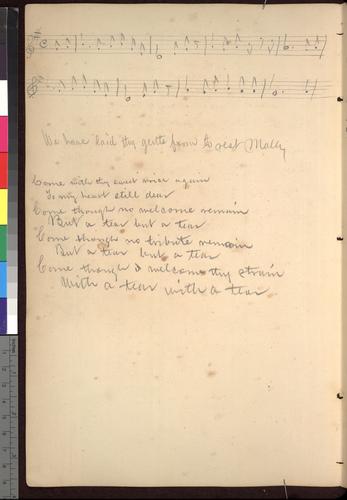 We have laid thy gentle form to rest Molly
Come with thy sweet voice again
To my heart still dear
Come though no welcome remain
But a tear but a tear
Come though no tribute remain
But a tear but a tear
Come though I welcome thy strain
With a tear with a tear